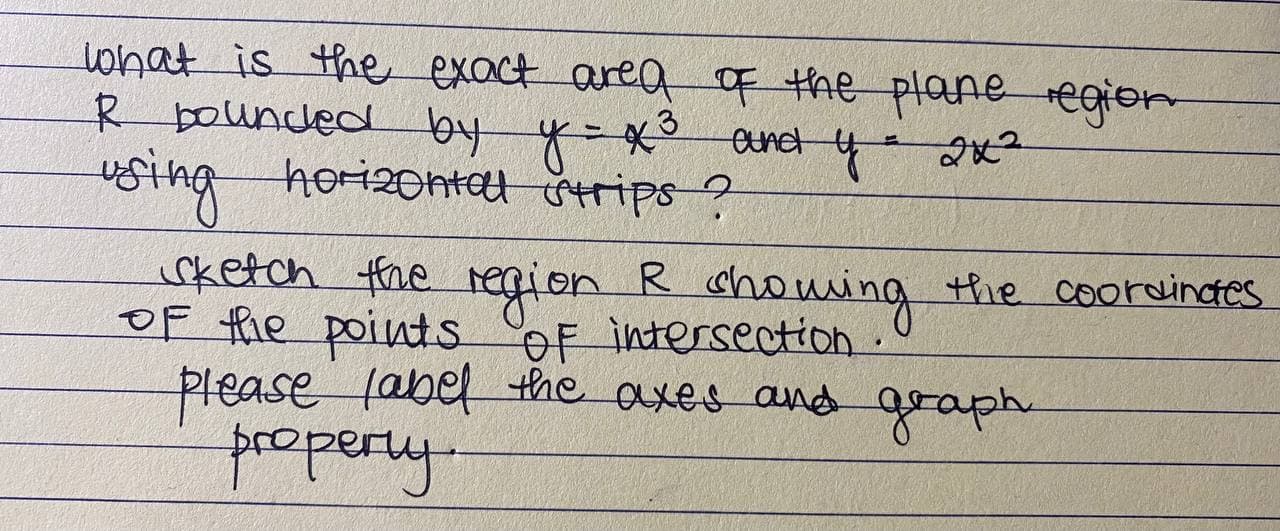 What is the exact area of the plane region
R bounded by y = x³ and y = 2x²
using horizontal strips?
sketch the region R showing the coordinates
of the points of intersection.
please label the axes and graph
properly.